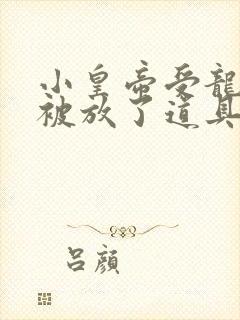 小皇帝受龍
被放了道具
呂顏